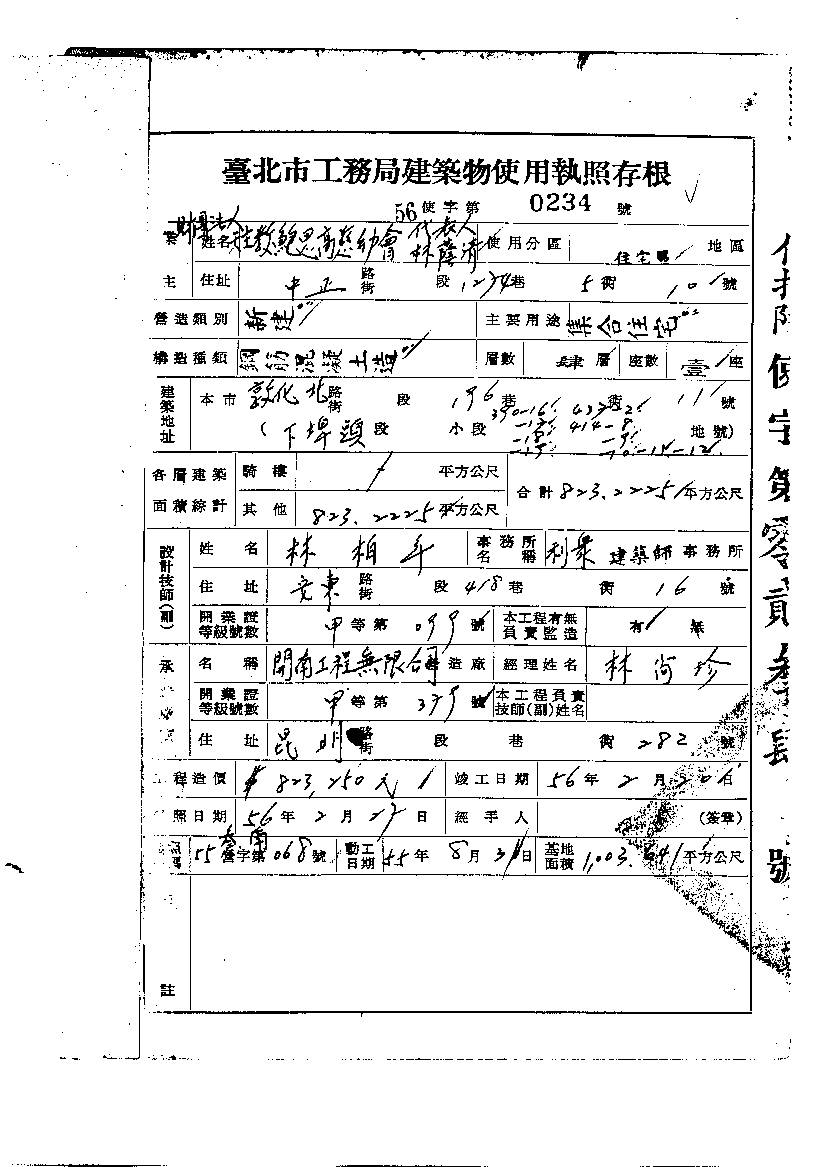 臺北市工務局建築物使用執照存根
56 使字第 0234 號
財團法人 代表人
業 姓名 主教鮑思高慈幼會 林蔭清 使用分區 住宅 地區
主 住址 中正 路街 段 1274 巷 5 衖 101 號
營造類別 新建 主要用途 集合住宅
構造種類 鋼筋混凝土造 層數 肆層 座數 壹座
建築地址 本市 敦化北 路街 段 196 巷 衖 11 號
390-16 437-2
-17 414-8
( 下埤頭 段 小段 -18 -9 地號)
-19 -10-11-12
各層建築 騎樓 平方公尺
合計 823.2225 平方公尺
面積綜計 其他 823.2225 平方公尺
設計技師(副) 姓名 林柏年 事務所名稱 利眾 建築師 事務所
住址 安東 路街 段 418 巷 衖 16 號
開業證等級號數 甲等第 099 號 本工程有無負責監造 有 無
承 名稱 開南工程無限公司 造廠 經理姓名 林尚珍
開業證等級號數 甲等第 379 號 本工程負責技師(副)姓名
住址 昆明 路街 段 巷 衖 282 號
程造價 $823,250元 竣工日期 56年2月20日
照日期 56年2月27日 經手人 (簽章)
55 字第 068 號 動工日期 55年8月31日 基地面積 1,003.641 平方公尺
註
使字第零貳參
號